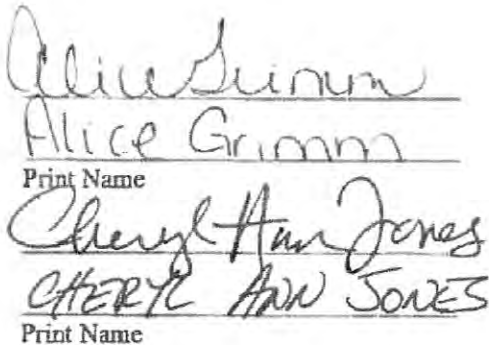 Alice Grimm
Alice Grimm
Print Name
Cheryl Ann Jones
CHERYL ANN JONES
Print Name